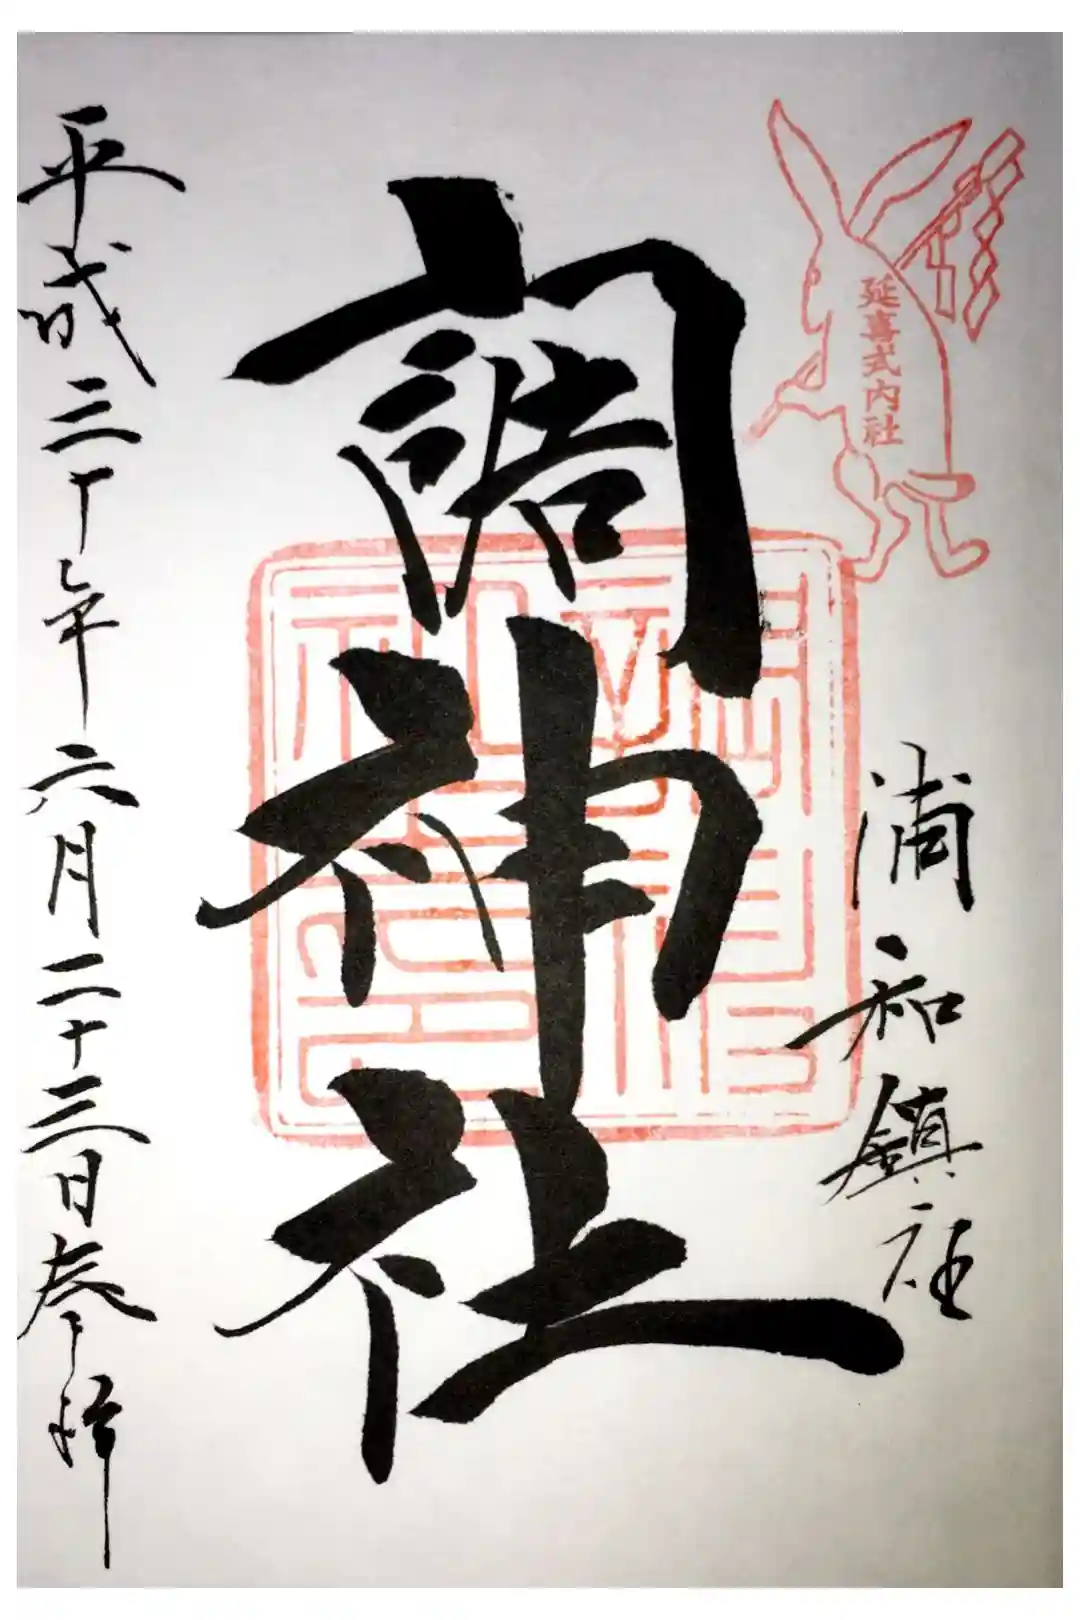 延喜式内社
浦和鎮座
調神社
平成三十年六月二十三日参拝